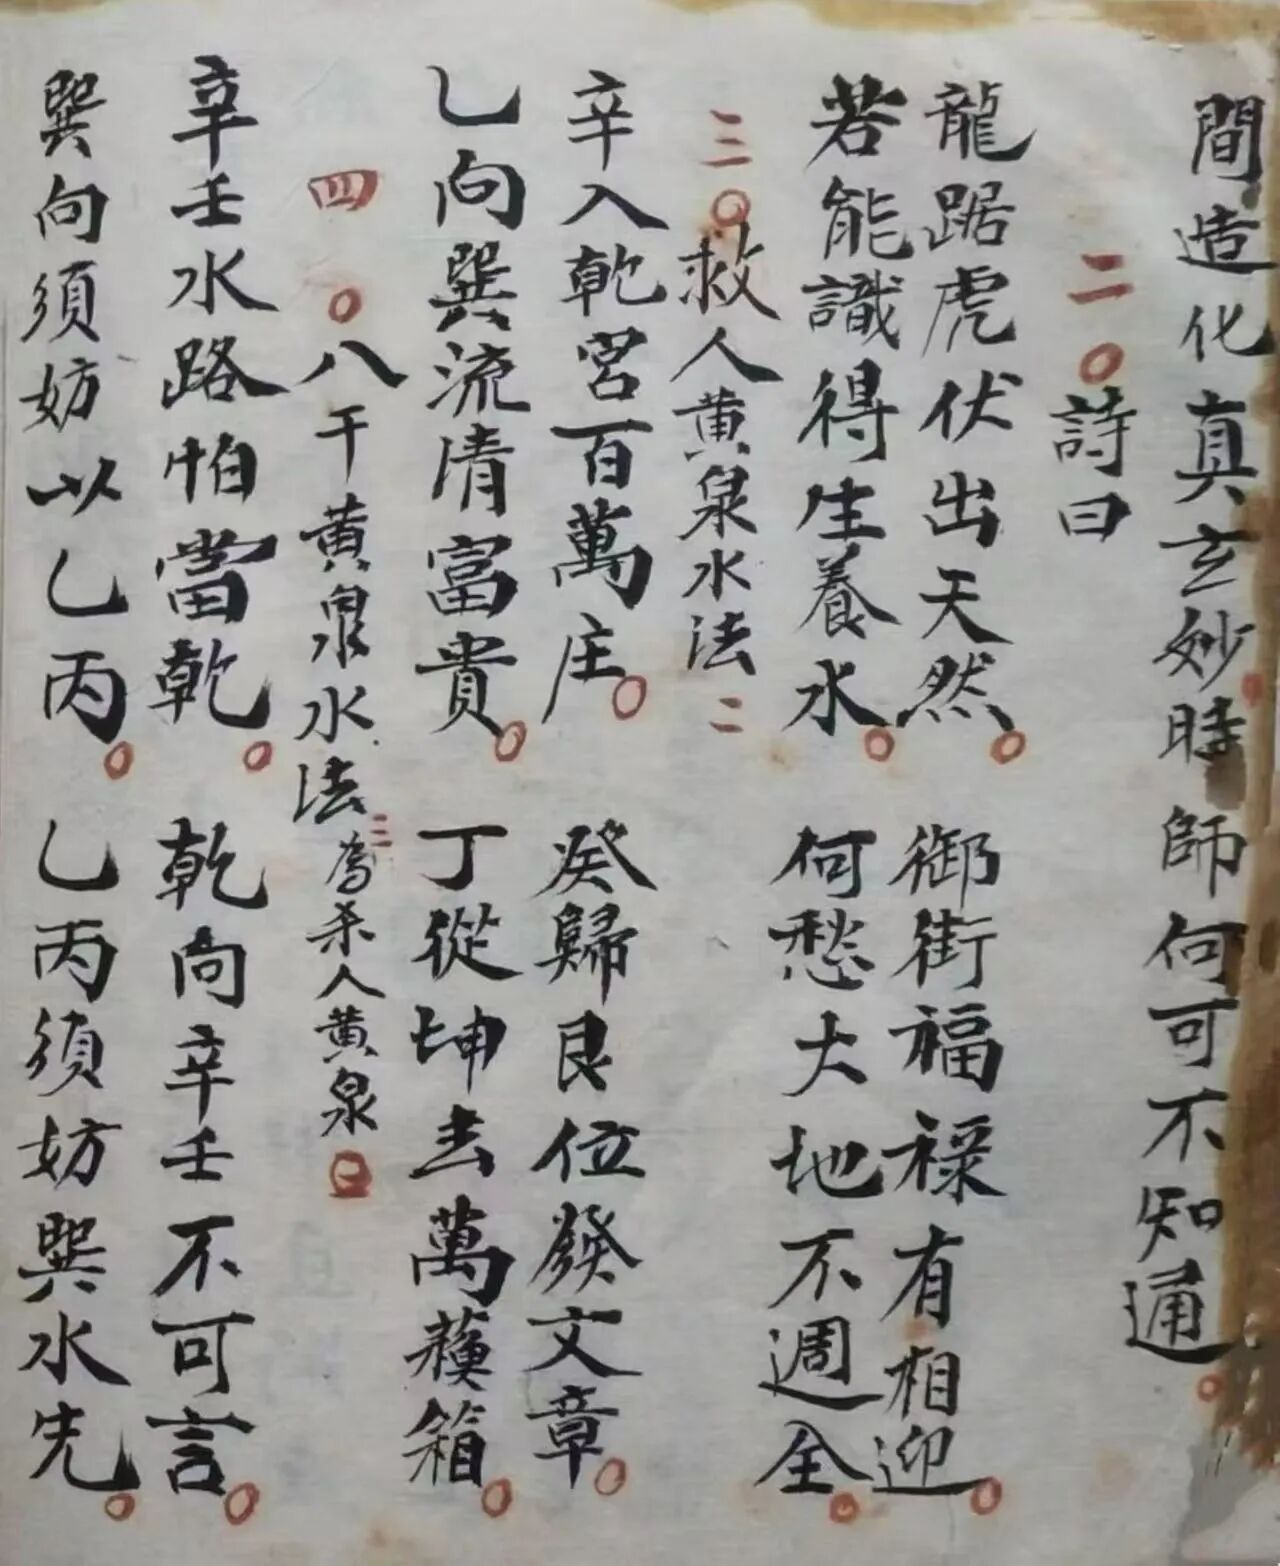 間造化真玄妙時師何可不知通
二○詩曰
龍踞虎伏出天然 御街福祿有相迎
若能識得生養水 何愁大地不週全
三○救人黄泉水法二
辛入乾宮百萬庄 癸歸艮位發文章
乙向巽流清富貴 丁從坤去萬蔱箱
四○八干黄泉水法三為杀人黄泉
辛壬水路怕當乾 乾向辛壬不可言
巽向須妨以乙丙 乙丙須妨巽水先